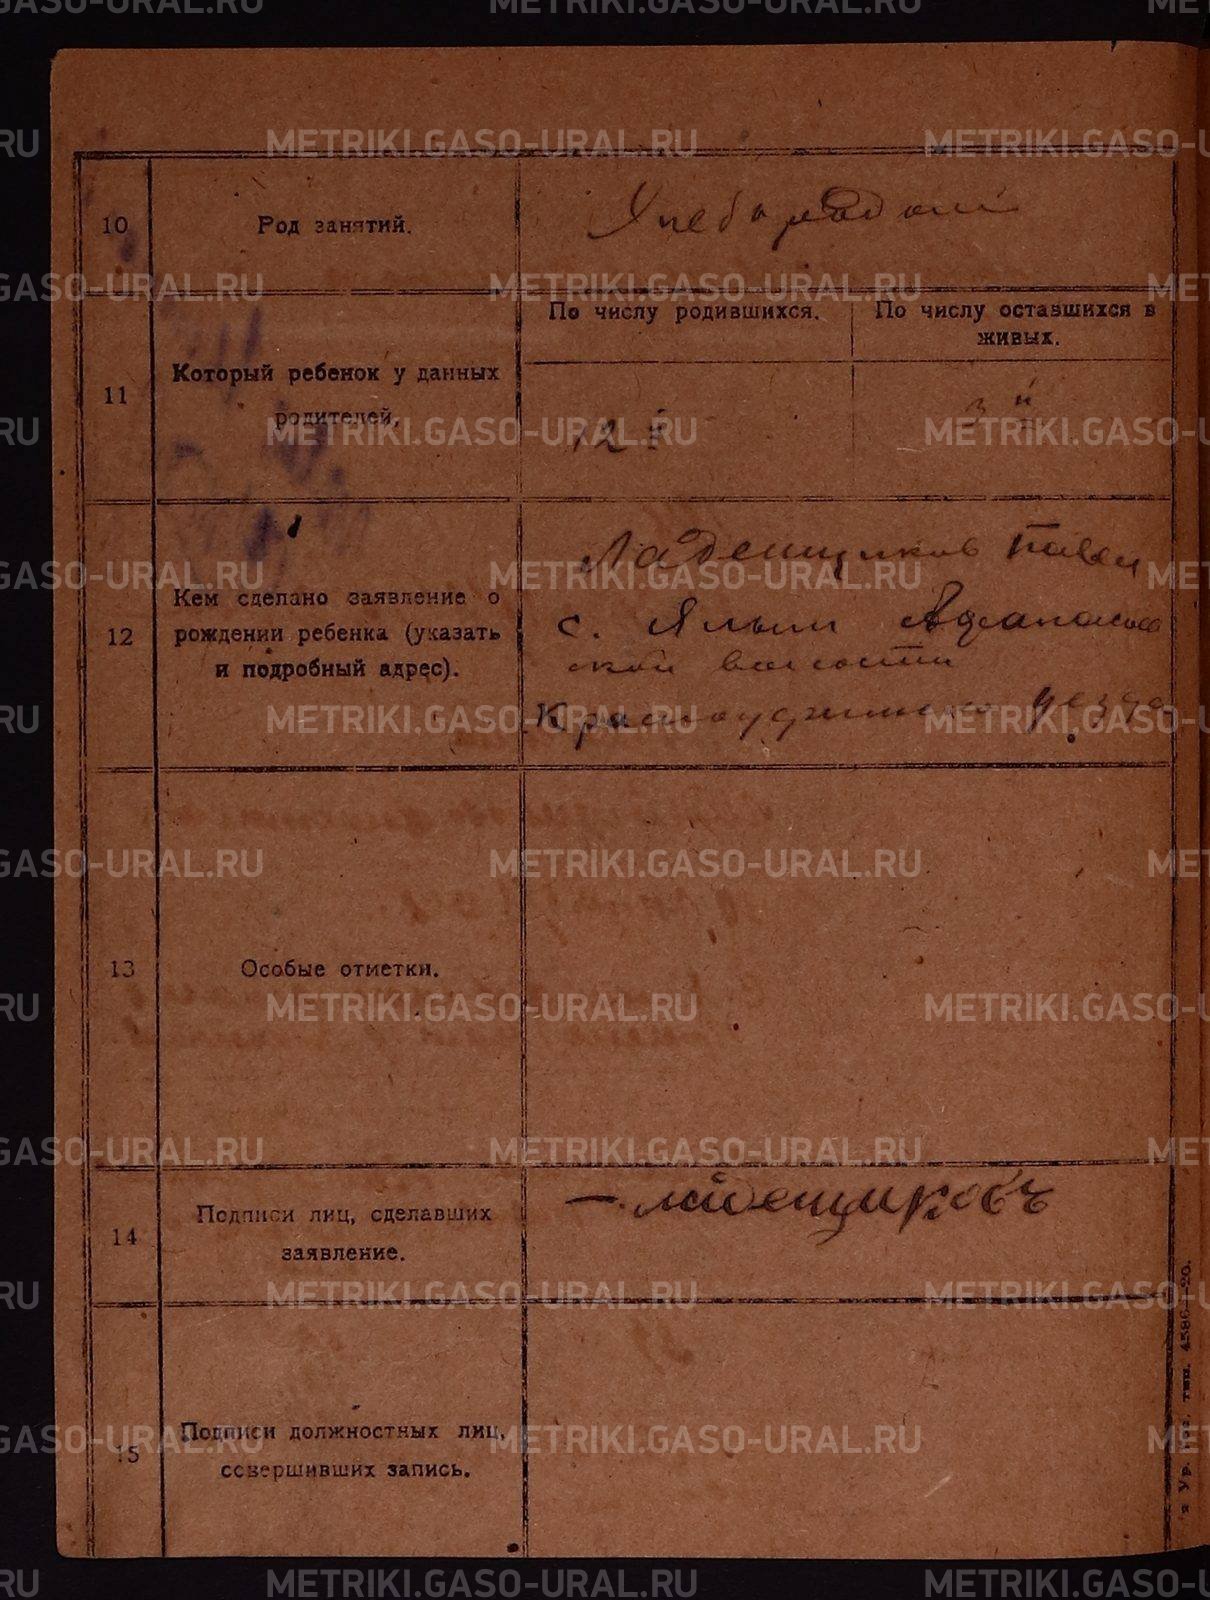 10
Род занятий.
Хлебородский
11
Который ребенок у данных
родителей,
По числу родившихся.
По числу оставшихся в
живых.
12й
3й
12
Кем сделано заявление о
рождении ребенка (указать
и подробный адрес).
Ладенщиков Павел
с. Ялым Афанасьев
ской волости
Красноуфимского уезда
13
Особые отметки.
14
Подписи лиц, сделавших
заявление.
Ладенщиковъ
15
Подписи должностных лиц,
совершивших запись.
я Ур. гос. тип. 4586—20.
METRIKI.GASO-URAL.RU